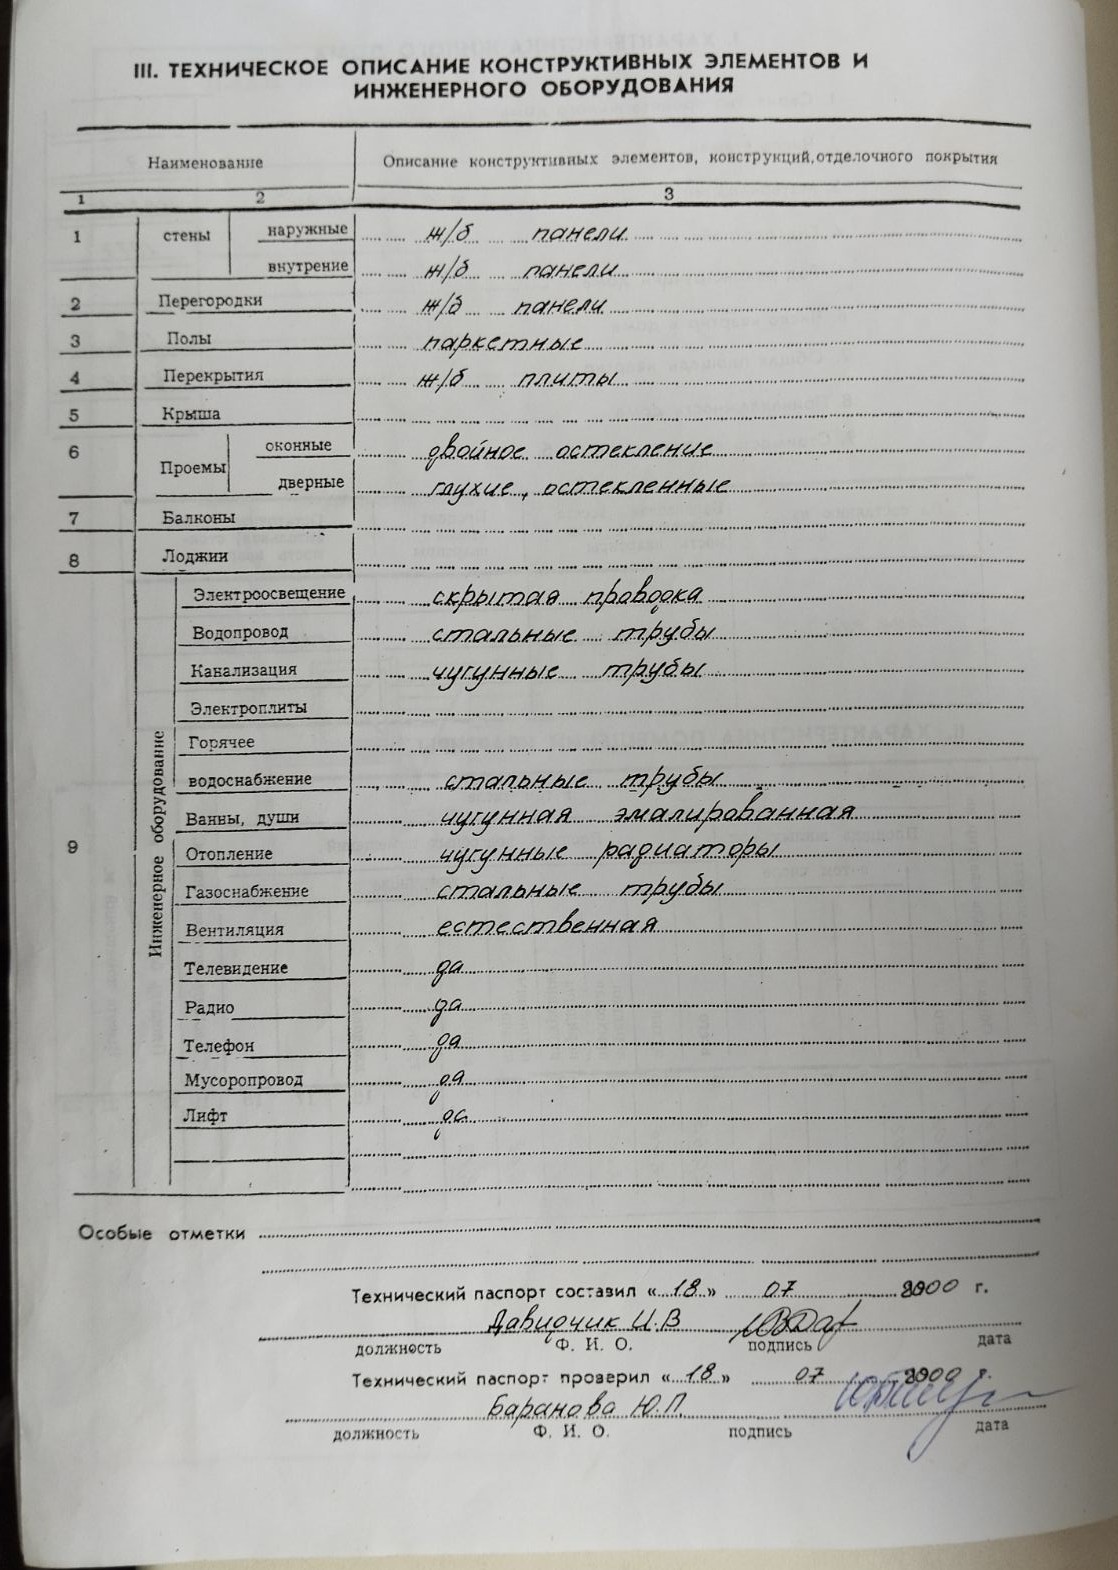 III. ТЕХНИЧЕСКОЕ ОПИСАНИЕ КОНСТРУКТИВНЫХ ЭЛЕМЕНТОВ И
ИНЖЕНЕРНОГО ОБОРУДОВАНИЯ
Наименование Описание конструктивных элементов, конструкций, отделочного покрытия
1 2 3
1 стены наружные ж/б панели
внутрение ж/б панели
2 Перегородки ж/б панели
3 Полы паркетные
4 Перекрытия ж/б плиты
5 Крыша
6 Проемы оконные двойное остекление
дверные глухие, остекленные
7 Балконы
8 Лоджии
9 Инженерное оборудование
Электроосвещение скрытая проводка
Водопровод стальные трубы
Канализация чугунные трубы
Электроплиты
Горячее
водоснабжение стальные трубы
Ванны, души чугунная эмалированная
Отопление чугунные радиаторы
Газоснабжение стальные трубы
Вентиляция естественная
Телевидение да
Радио да
Телефон да
Мусоропровод да
Лифт да
Особые отметки
Технический паспорт составил « 18 » 07 2000 г.
Давидчик И.В
должность Ф. И. О. подпись дата
Технический паспорт проверил « 18 » 07 2000 г.
Баранова Ю.П.
должность Ф. И. О. подпись дата